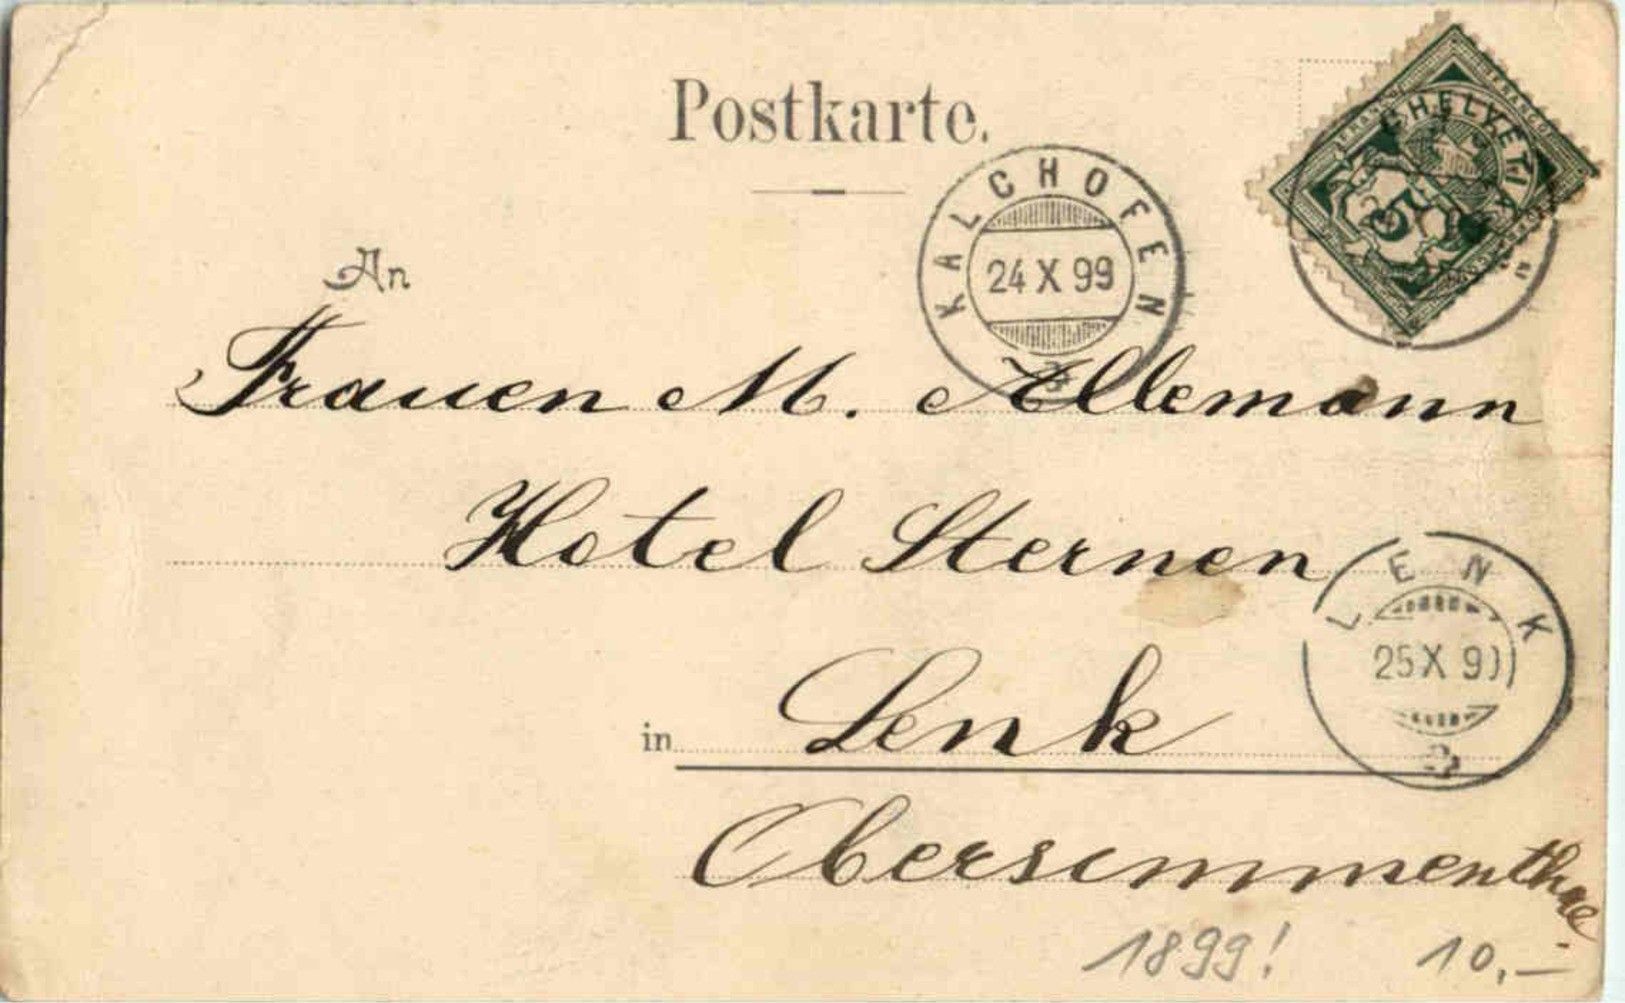 Postkarte.
HELVETIA
FRANCO
5
KALCHOFEN
24 X 99
An
Frauen M. Allemann
Hotel Sternen
LENK
25 X 9
in Lenk
Obersimmenthal.
1899! 10,-